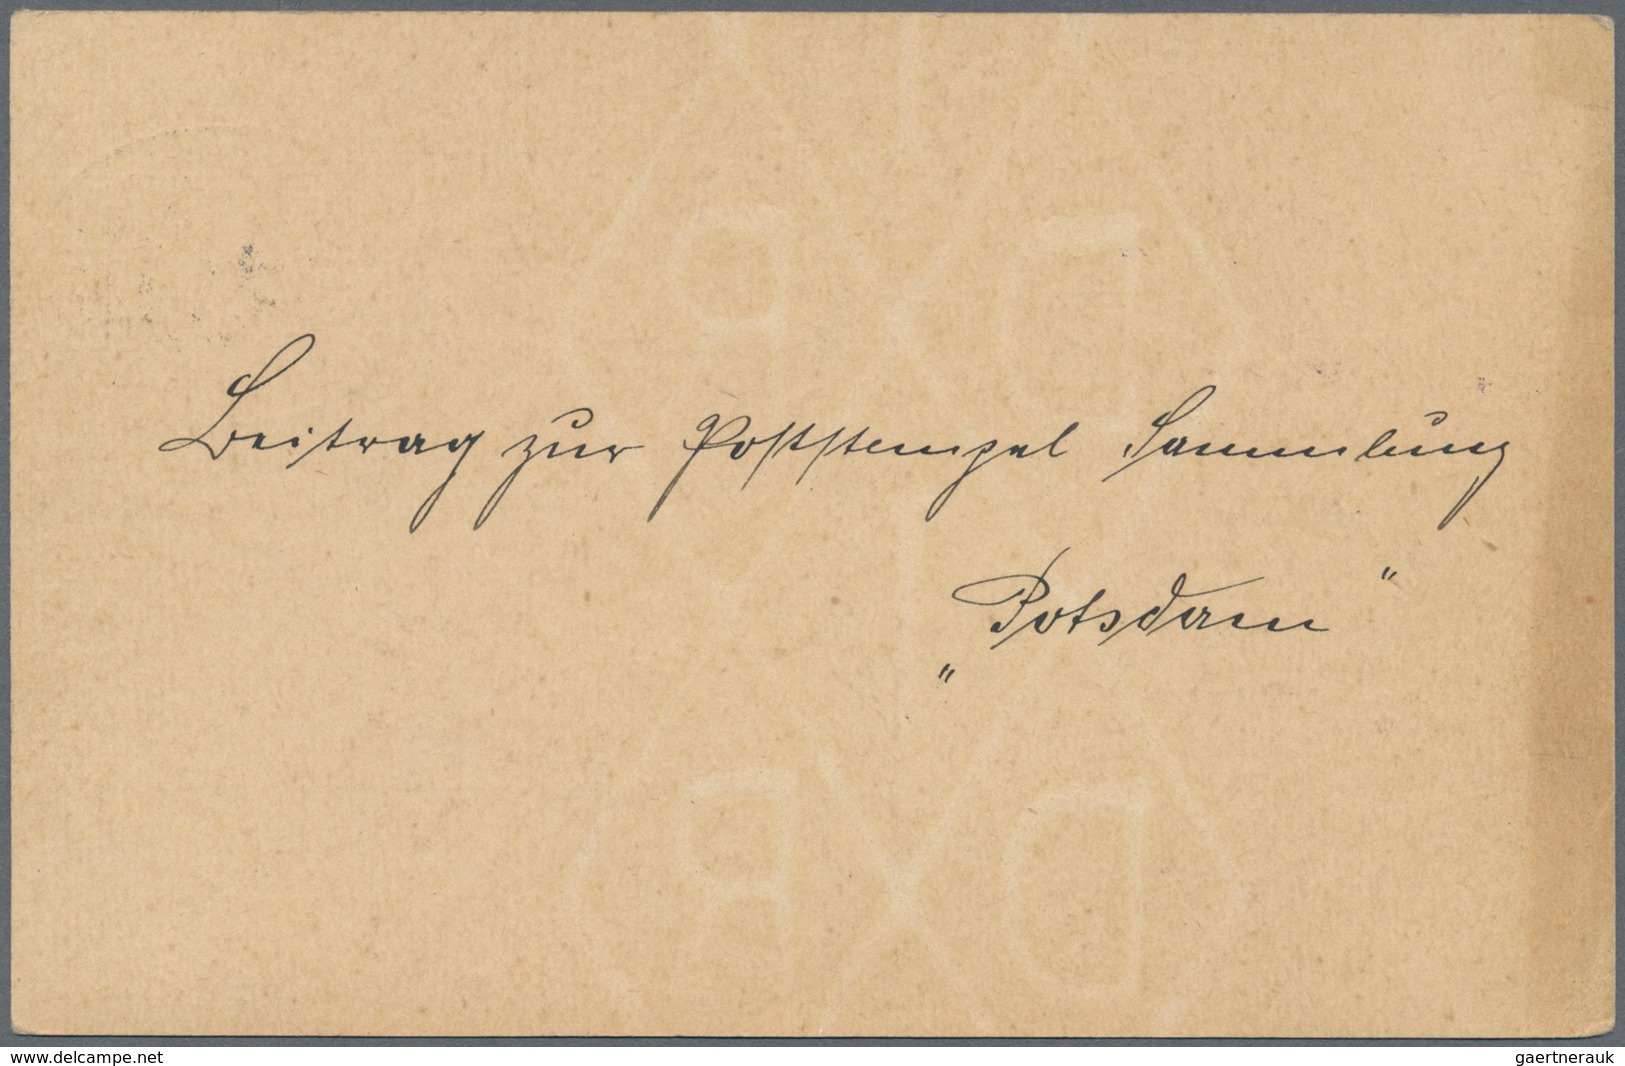 Beitrag zur Poststempel Sammlung
„Potsdam"
www.delcampe.net
gaertnerauk